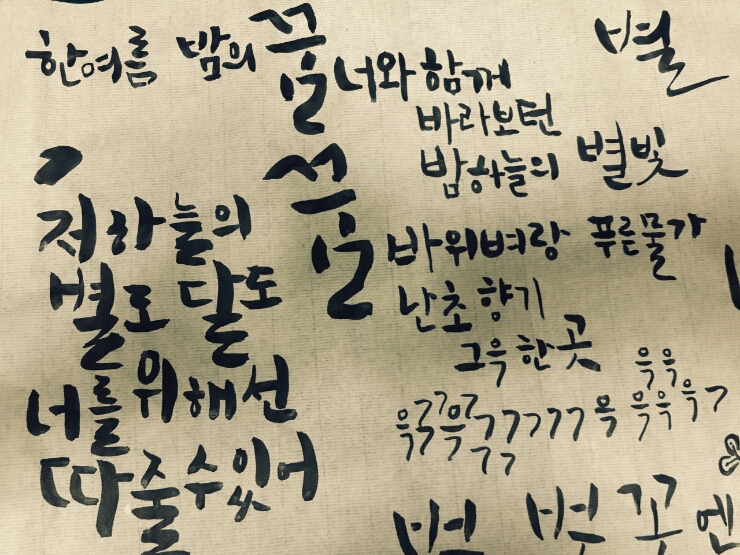 한여름 밤의 꿈
너와 함께
바라보던
밤하늘의 별빛
별
저 하늘의
별도 달도
너를 위해선
따 줄 수 있어
섬
바위벼랑 푸른물가
난초 향기
그윽한 곳
윽윽
윽ㄱㄱ윽ㄱㄱㄱㄱㄱㄱ윽 윽윽윽ㄱ
ㄱㄱ
벚꽃엔